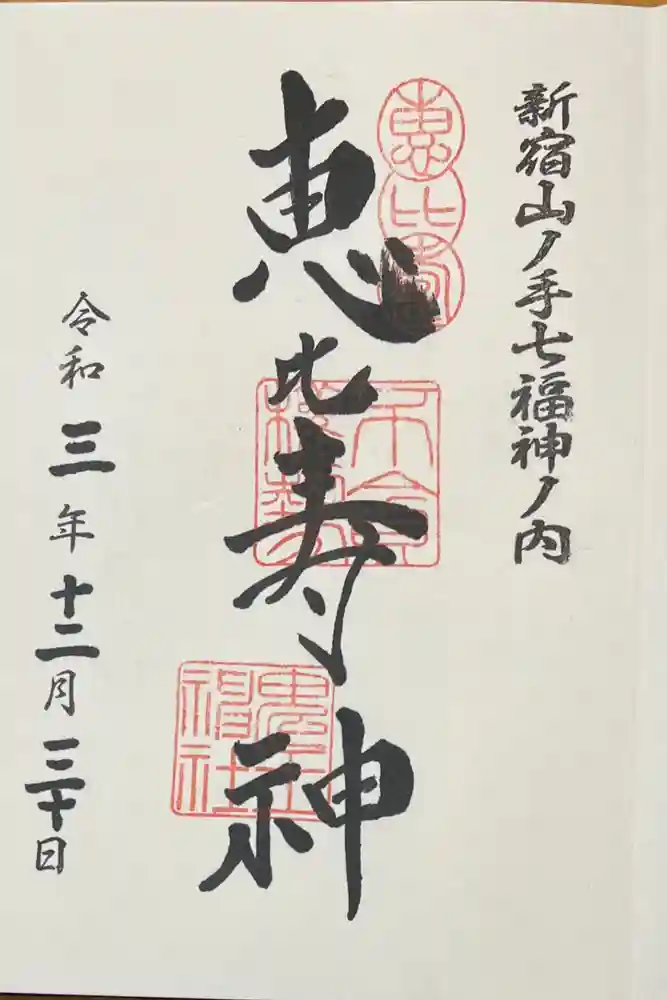 新宿山ノ手七福神ノ内
恵比寿
恵比寿神
鬼王神社
令和三年十二月三十日